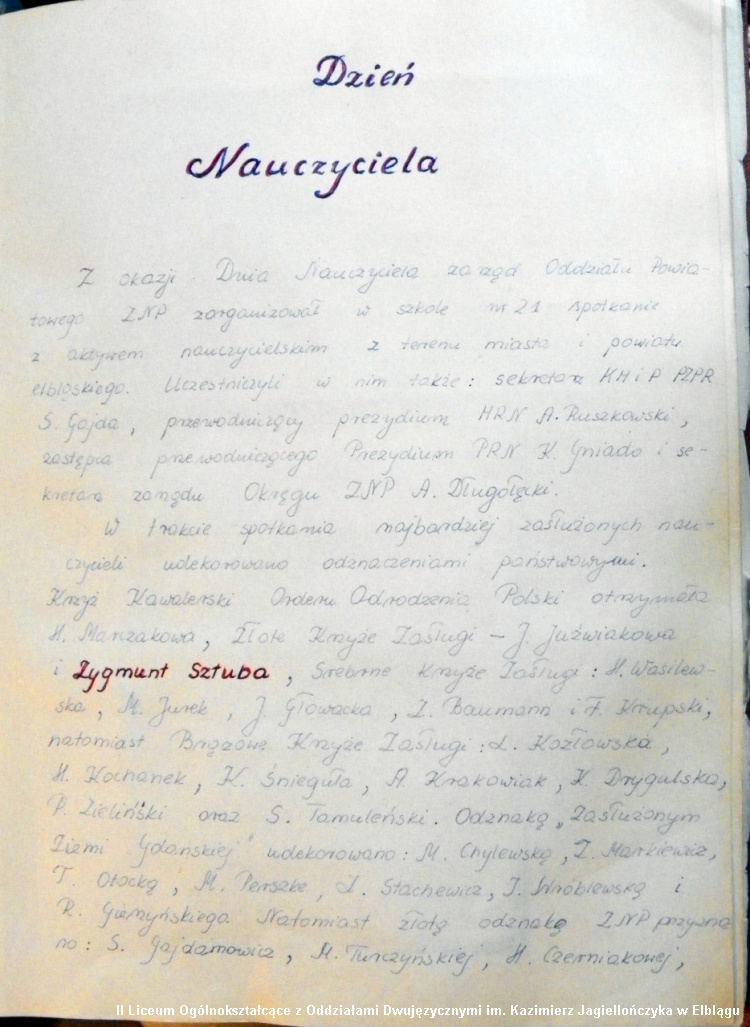 Dzień
Nauczyciela
Z okazji Dnia Nauczyciela zarząd Oddziału Powia-
towego ZNP zorganizował w szkole nr 21 spotkanie
z aktywem nauczycielskim z terenu miasta i powiatu
elbląskiego. Uczestniczyli w nim także: sekretarz KMiP PZPR
S. Gajda, przewodniczący prezydium MRN A. Ruszkowski,
zastępca przewodniczącego Prezydium PRN K. Gniado i se-
kretarz zarządu Okręgu ZNP A. Długołęcki.
W trakcie spotkania najbardziej zasłużonych nau-
czycieli udekorowano odznaczeniami państwowymi.
Krzyż Kawalerski Orderu Odrodzenia Polski otrzymała
H. Marzakowa, Złote Krzyże Zasługi – J. Juźwiakowa
i Zygmunt Sztuba, Srebrne Krzyże Zasługi: H. Wasilew-
ska, M. Jurek, J. Głowacka, Z. Baumann i F. Krupski,
natomiast Brązowe Krzyże Zasługi: L. Kozłowska,
H. Kochanek, K. Śnieguła, A. Krakowiak, K. Drygulska,
P. Zieliński oraz S. Tamuleński. Odznaką „Zasłużonym
Ziemi Gdańskiej" udekorowano: M. Chylewską, Z. Markiewicz,
T. Otocką, M. Perszke, L. Stachewicz, J. Wróblewską i
R. Giemzyńskiego Natomiast złotą odznakę ZNP przyzna
no: S. Gajdamowicz, M. Turczyńskiej, H. Czerniakowej,
II Liceum Ogólnokształcące z Oddziałami Dwujęzycznymi im. Kazimierz Jagiellończyka w Elblągu